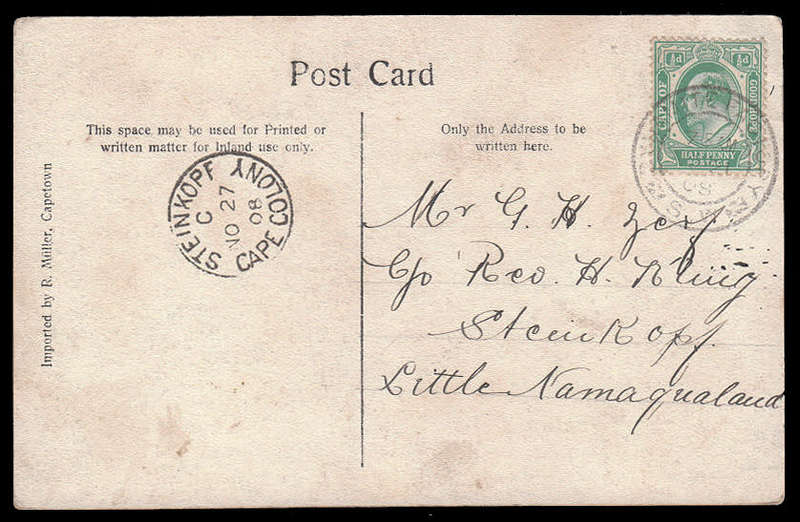 Post Card
This space may be used for Printed or
written matter for Inland use only.
Only the Address to be
written here.
Imported by R. Müller, Capetown
STEINKOPF
C
NO 27
08
CAPE COLONY
½d ½d
CAPE OF GOOD HOPE
HALFPENNY
POSTAGE
08
Mr G. H. Zerf
C/o Rev. H. Kling
Steinkopf.
Little Namaqualand